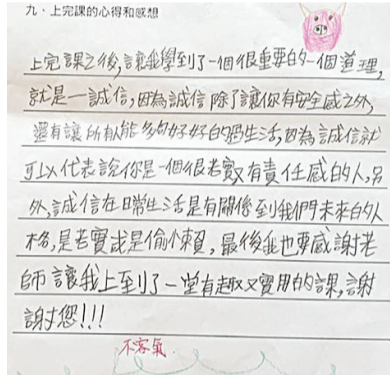 九、上完課的心得和感想
上完課之後,讓我學到了一個很重要的一個道理,
就是一誠信,因為誠信除了讓你有安全感之外,
還有讓所有人能夠好好的過生活,因為誠信就
可以代表說你是一個很老實又有責任感的人,另
外,誠信在日常生活是有關係到我們未來的人
格,是老實或是偷懶,最後我也要感謝老
師讓我上到了一堂有趣又實用的課,謝
謝您!!!
不客氣